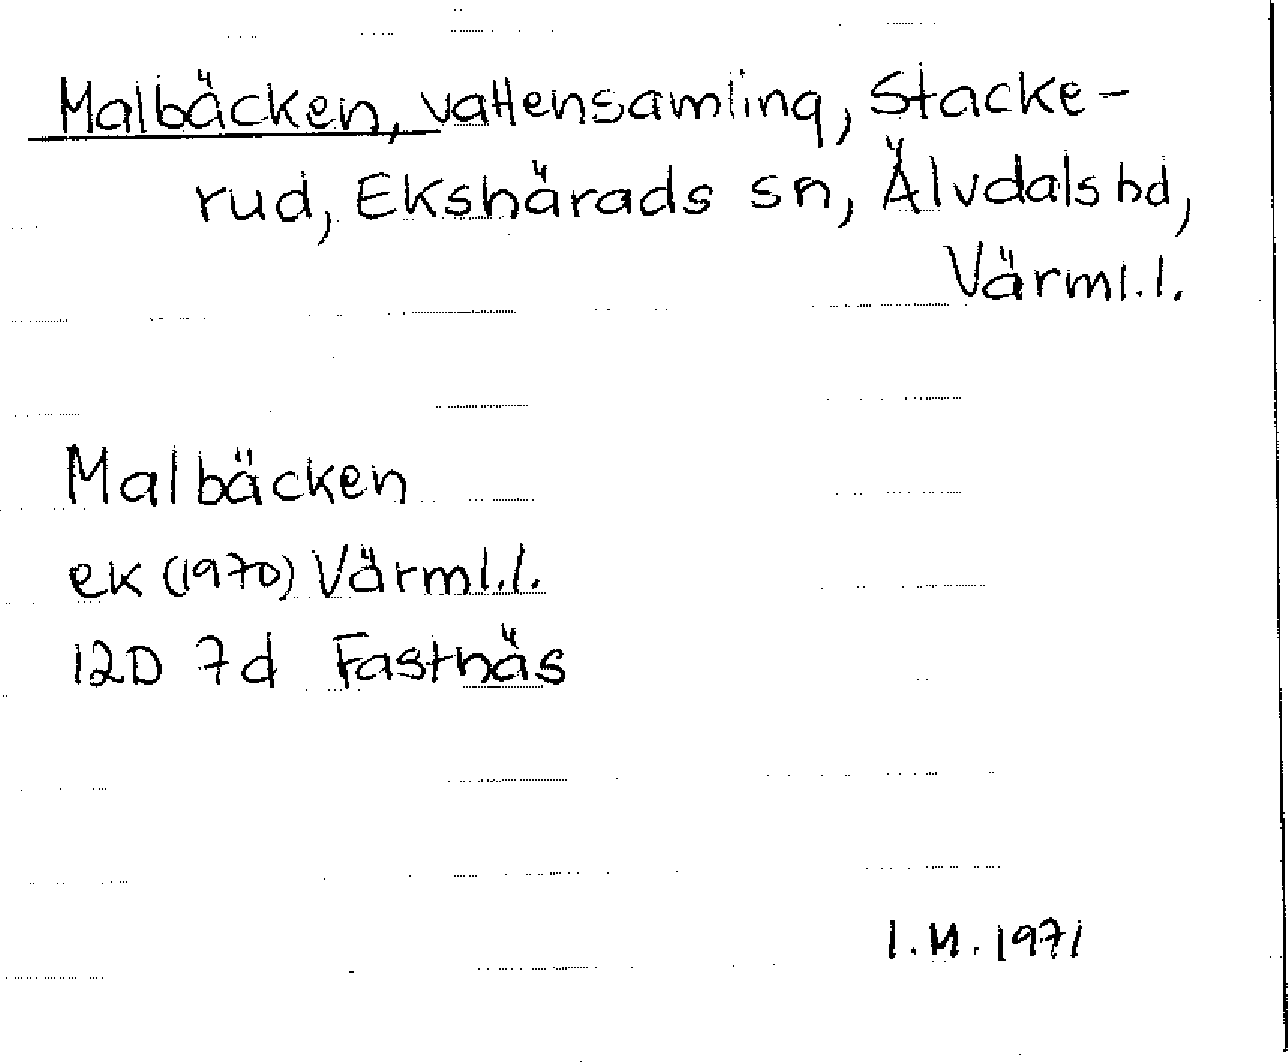 Malbäcken, vattensamling, Stacke-
rud, Ekshärads sn, Älvdals hd,
Värml.l.
Malbäcken
ek (1970) Värml.l.
12D 7d Fastnäs
I.M. 1971